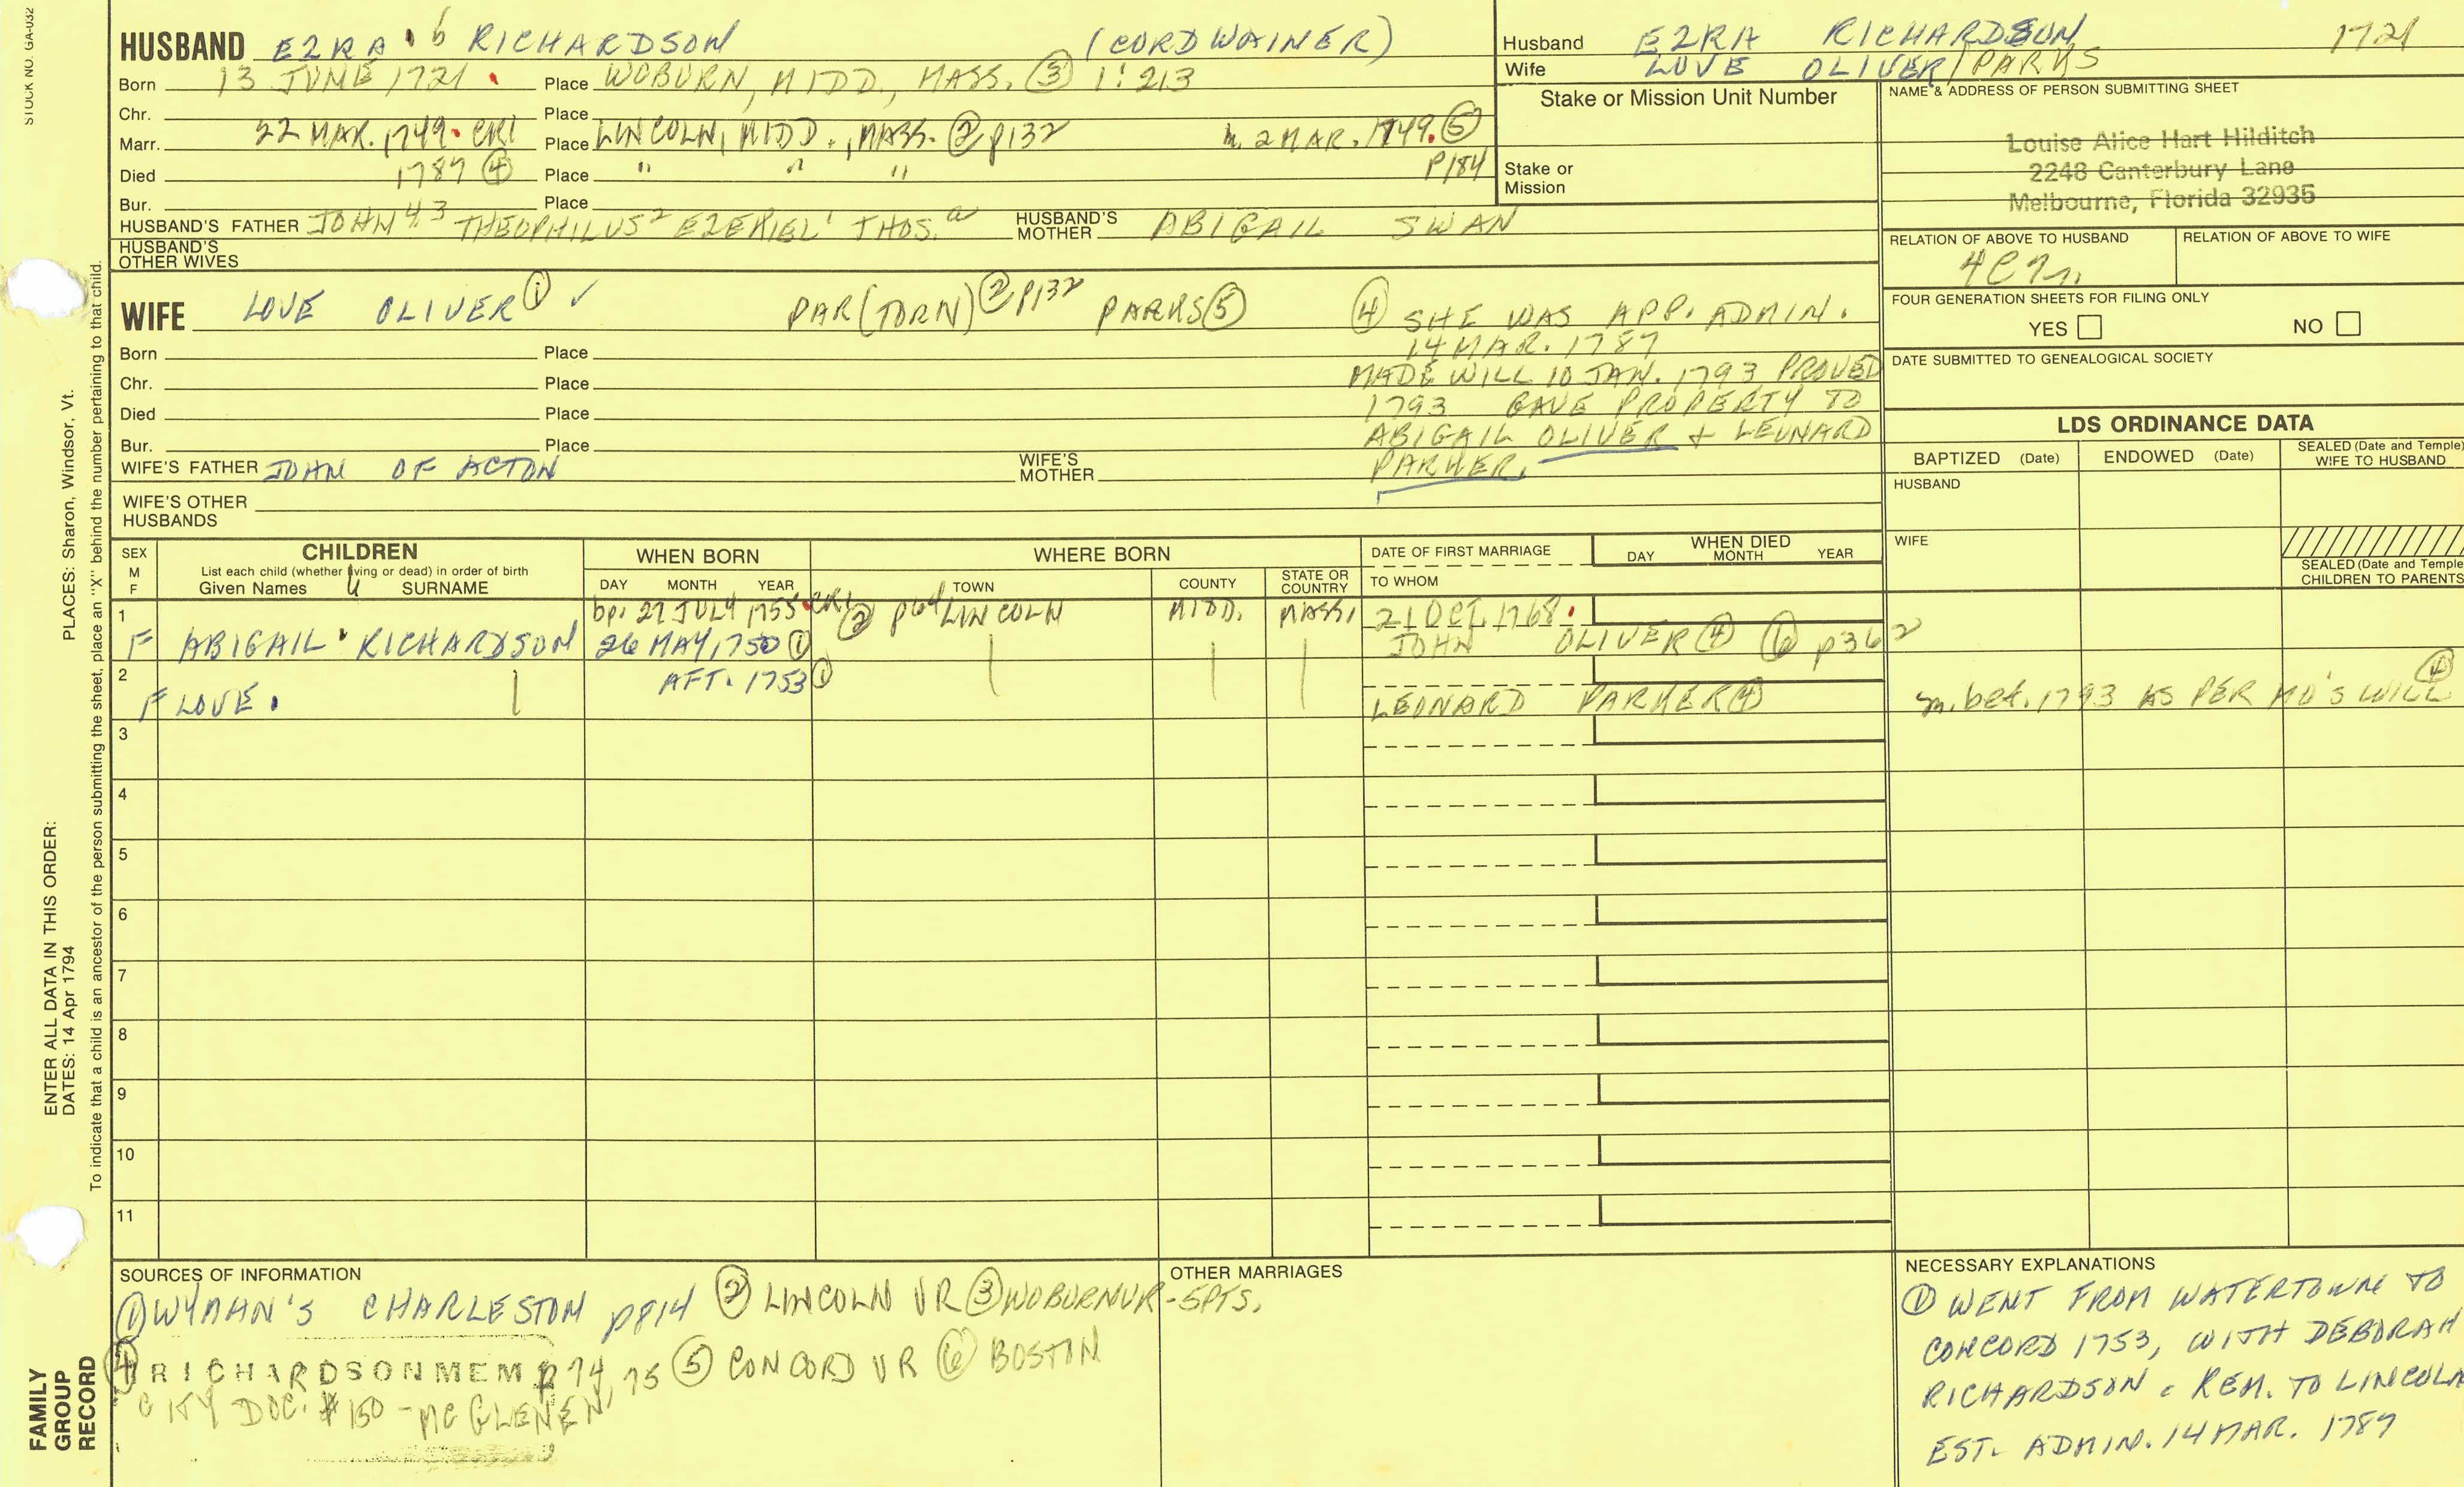 STOCK NO. GA-032
HUSBAND EZRA 6 RICHARDSON (CORDWAINER)
Born 13 JUNE 1721 Place WOBURN, MIDD., MASS. ③ 1:213
Chr. Place
Marr. 22 MAR. 1749 CR1 Place LINCOLN, MIDD., MASS. ② p132 m. 2 MAR. 1749. ⑤
Died 1787 ④ Place " " " P184
Bur. Place
HUSBAND'S FATHER JOHN 4,3 THEOPHILUS 2 EZEKIEL 1 THOS. a HUSBAND'S MOTHER ABIGAIL SWAN
HUSBAND'S OTHER WIVES
WIFE LOVE OLIVER ① ✓ PAR(TORN) ② P132 PARKS ⑤ ④ SHE WAS APP. ADMIN.
14 MAR. 1787
Born Place
MADE WILL 10 JAN. 1793 PROVED
Chr. Place
1793 GAVE PROPERTY TO
Died Place
ABIGAIL OLIVER + LEONARD
Bur. Place
PARKER.
WIFE'S FATHER JOHN OF ACTON WIFE'S MOTHER
WIFE'S OTHER HUSBANDS
Husband EZRA RICHARDSON 1721
Wife LOVE OLIVER/PARKS
Stake or Mission Unit Number
Stake or Mission
NAME & ADDRESS OF PERSON SUBMITTING SHEET
Louise Alice Hart Hilditch
2248 Canterbury Lane
Melbourne, Florida 32935
RELATION OF ABOVE TO HUSBAND RELATION OF ABOVE TO WIFE
FOUR GENERATION SHEETS FOR FILING ONLY
YES NO
DATE SUBMITTED TO GENEALOGICAL SOCIETY
LDS ORDINANCE DATA
BAPTIZED (Date) ENDOWED (Date) SEALED (Date and Temple) WIFE TO HUSBAND
HUSBAND
WIFE
SEALED (Date and Temple CHILDREN TO PARENTS
SEX M F
CHILDREN
List each child (whether living or dead) in order of birth
Given Names SURNAME
WHEN BORN
DAY MONTH YEAR
WHERE BORN
TOWN COUNTY STATE OR COUNTRY
DATE OF FIRST MARRIAGE
TO WHOM
WHEN DIED
DAY MONTH YEAR
1 bp. 27 JULY 1755 CR1 ② p64 LINCOLN MIDD. MASS. 21 OCT. 1768.
F ABIGAIL RICHARDSON 26 MAY, 1750 ① JOHN OLIVER ④ ⑥ p362
2 AFT. 1753 ①
F LOVE. LEONARD PARKER ④ m. bef. 1793 AS PER MO'S WILL ④
3
4
5
6
7
8
9
10
11
SOURCES OF INFORMATION
① WYMAN'S CHARLESTOM p814 ② LINCOLN VR ③ WOBURN VR - 5PTS.
④ RICHARDSON MEM p 74, 75 ⑤ CONCORD VR ⑥ BOSTON
CITY DOC. #150 - MC GLENEN
OTHER MARRIAGES
NECESSARY EXPLANATIONS
① WENT FROM WATERTOWN TO
CONCORD 1753, WITH DEBORAH
RICHARDSON. REM. TO LINCOLN
EST. ADMIN. 14 MAR. 1787
FAMILY GROUP RECORD
ENTER ALL DATA IN THIS ORDER:
DATES: 14 Apr 1794
PLACES: Sharon, Windsor, Vt.
To indicate that a child is an ancestor of the person submitting the sheet, place an "X" behind the number pertaining to that child.